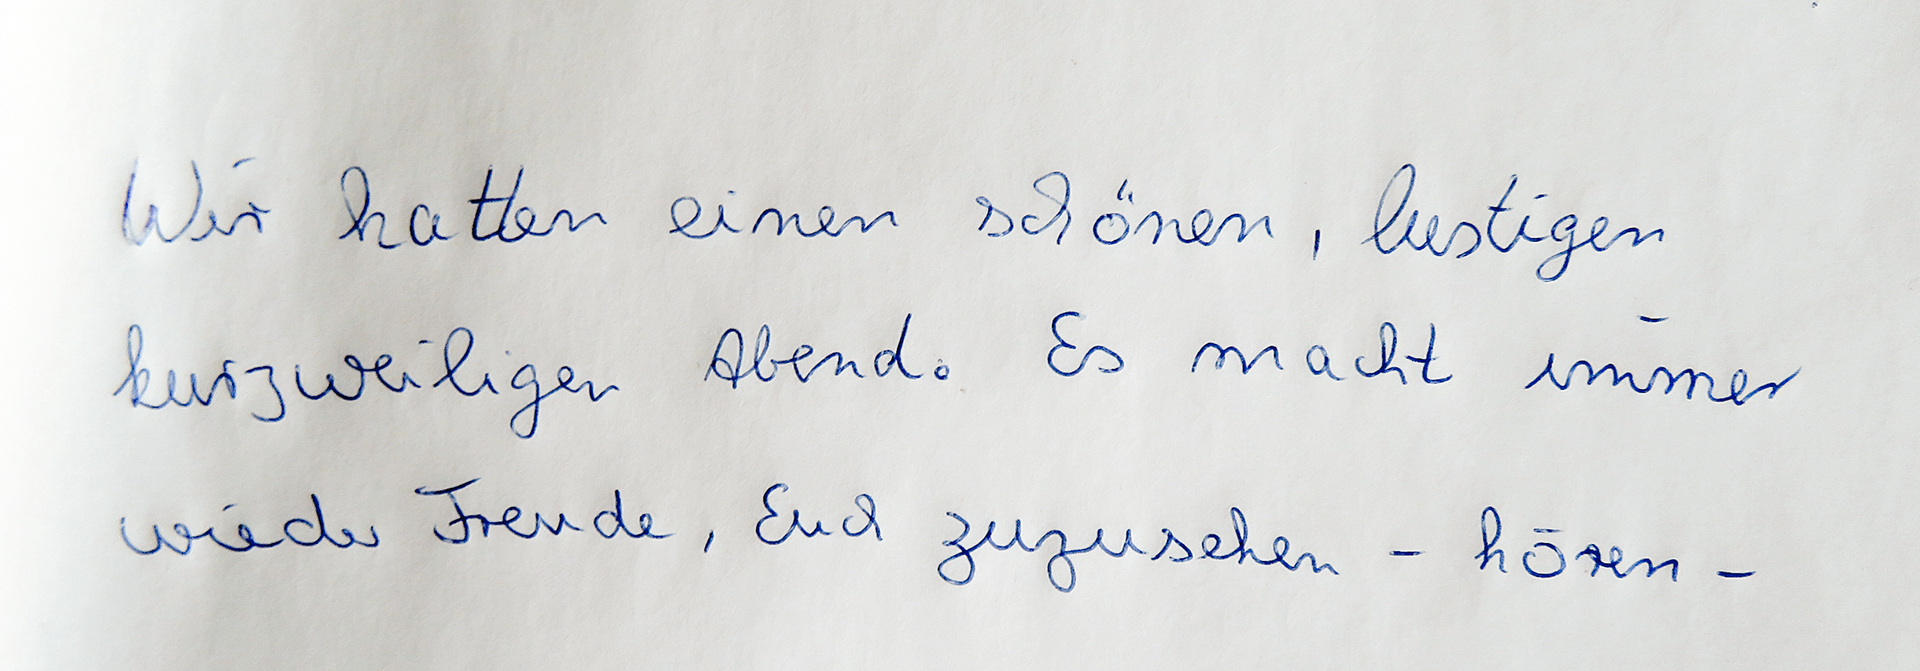 Wir hatten einen schönen, lustigen
kurzweiligen Abend. Es macht immer
wieder Freude, Euch zuzusehen - hören -